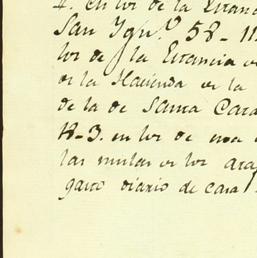 4. en los de la Estanc
San Ygn.º 58 - 11
los de la Estancia
de la Hacienda de la
de la de Santa Cata
18-3. en los de
las mulas de los
gasto diario de casa